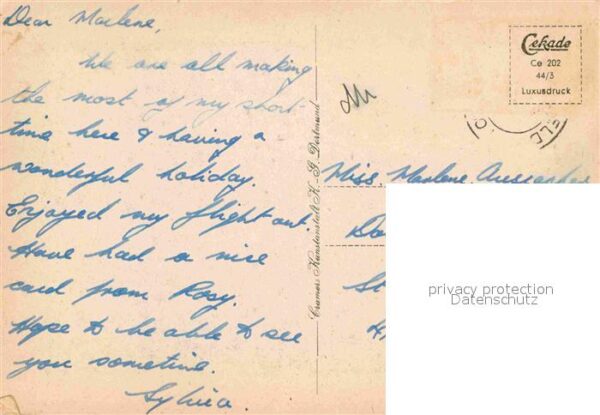 Dear Marlene,
We are all making
the most of my short
time here & having a
wonderful holiday.
Enjoyed my flight out.
Have had a nice
card from Rosy.
Hope to be able to see
you sometime.
Sylvia.
Cramers Kunstanstalt K.-G. Dortmund
Cekade
Ce 202
44/3
Luxusdruck
Miss. Marlene
privacy protection
Datenschutz